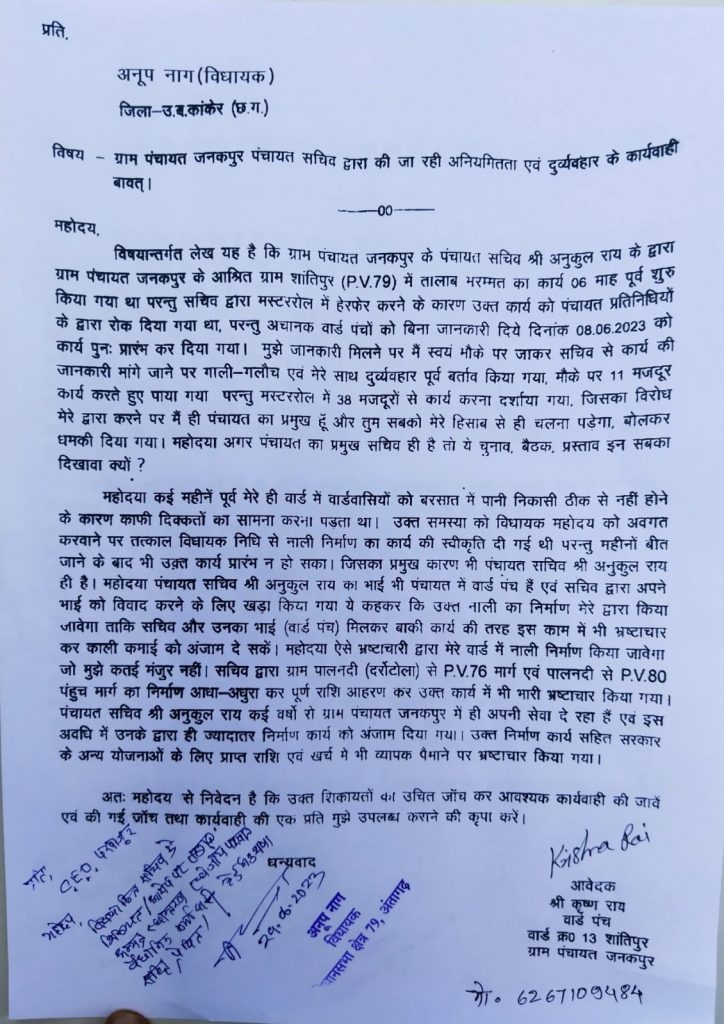 प्रति,
अनूप नाग (विधायक)
जिला-उ.ब.कांकेर (छ.ग.)
विषय - ग्राम पंचायत जनकपुर पंचायत सचिव द्वारा की जा रही अनियगितता एवं दुर्व्यवहार के कार्यवाही
बावत्।
-----00-----
महोदय,
विषयान्तर्गत लेख यह है कि ग्राम पंचायत जनकपुर के पंचायत सचिव श्री अनुकुल राय के द्वारा
ग्राम पंचायत जनकपुर के आश्रित ग्राम शांतिपुर (P.V.79) में तालाब भरम्मत का कार्य 06 माह पूर्व शुरु
किया गया था परन्तु सचिव द्वारा मस्टररोल में हेरफेर करने के कारण उक्त कार्य को पंचायत प्रतिनिधियों
के द्वारा रोक दिया गया था, परन्तु अचानक वार्ड पंचों को बिना जानकारी दिये दिनांक 08.06.2023 को
कार्य पुनः प्रारंभ कर दिया गया। मुझे जानकारी मिलने पर मैं स्वयं मौके पर जाकर सचिव से कार्य की
जानकारी मांगे जाने पर गाली-गलौच एवं मेरे साथ दुर्व्यवहार पूर्व बर्ताव किया गया, मौके पर 11 मजदूर
कार्य करते हुए पाया गया परन्तु मस्टररोल में 38 मजदूरों से कार्य करना दर्शाया गया, जिसका विरोध
मेरे द्वारा करने पर मैं ही पंचायत का प्रमुख हूँ और तुम सबको मेरे हिसाब से ही चलना पड़ेगा, बोलकर
धमकी दिया गया। महोदया अगर पंचायत का प्रमुख सचिव ही है तो ये चुनाव, बैठक, प्रस्ताव इन सबका
दिखावा क्यों ?
महोदया कई महीनें पूर्व मेरे ही वार्ड में वार्डवासियों को बरसात में पानी निकासी ठीक से नहीं होने
के कारण काफी दिक्कतों का सामना करना पड़ता था। उक्त समस्या को विधायक महोदय को अवगत
करवाने पर तत्काल विधायक निधि से नाली निर्माण का कार्य की स्वीकृति दी गई थी परन्तु महीनों बीत
जाने के बाद भी उक़्त कार्य प्रारंभ न हो सका। जिसका प्रमुख कारण भी पंचायत सचिव श्री अनुकुल राय
ही है। महोदया पंचायत सचिव श्री अनुकुल राय का भाई भी पंचायत में वार्ड पंच हैं एवं सचिव द्वारा अपने
भाई को विवाद करने के लिए खड़ा किया गया ये कहकर कि उक्त नाली का निर्माण मेरे द्वारा किया
जावेगा ताकि सचिव और उनका भाई (वार्ड पंच) मिलकर बाकी कार्य की तरह इस काम में भी भ्रष्टाचार
कर काली कमाई को अंजाम दे सकें। महोदया ऐसे भ्रष्टाचारी द्वारा मेरे वार्ड में नाली निर्माण किया जावेगा
जो मुझे कतई मंजुर नहीं। सचिव द्वारा ग्राम पालनदी (दर्रोटोला) से P.V.76 मार्ग एवं पालनदी से P.V.80
पंहुच मार्ग का निर्माण आधा-अधुरा कर पूर्ण राशि आहरण कर उक्त कार्य में भी भारी भ्रष्टाचार किया गया।
पंचायत सचिव श्री अनुकुल राय कई वर्षो रो ग्राम पंचायत जनकपुर में ही अपनी सेवा दे रहा हैं एवं इस
अवधि में उनके द्वारा ही ज्यादातर निर्माण कार्य को अंजाम दिया गया। उक्त निर्माण कार्य सहित सरकार
के अन्य योजनाओं के लिए प्राप्त राशि एवं खर्च मे भी व्यापक पैमाने पर भ्रष्टाचार किया गया।
अतः महोदय से निवेदन है कि उक्त शिकायतों का उचित जाँच कर आवश्यक कार्यवाही की जावें
एवं की गई जाँच तथा कार्यवाही की एक प्रति मुझे उपलब्ध कराने की कृपा करें।
धन्यवाद
Krishna Rai
आवेदक
श्री कृष्ण राय
वार्ड पंच
वार्ड क्र0 13 शांतिपुर
ग्राम पंचायत जनकपुर
मो. 6267109484
प्रति,
C.E.O
महोदय,
29.6.2023
अनूप नाग
विधायक
विधानसभा क्षेत्र 79, अंतागढ़